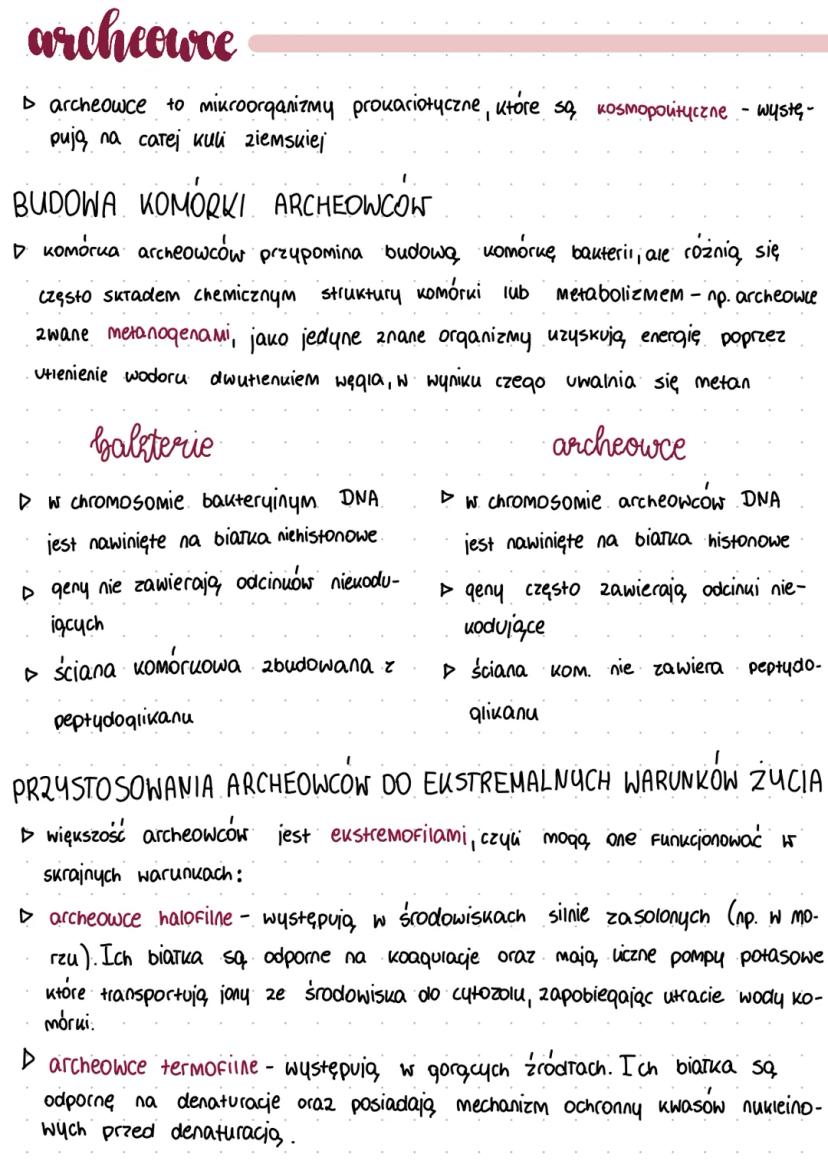 archeowce
▷ archeowce to mikroorganizmy prokariotyczne, które są kosmopolityczne - wystę-
pują na całej kuli ziemskiej
BUDOWA KOMÓRKI ARCHEOWCÓW
▷ komórka archeowców przypomina budową komórkę bakterii, ale różnią się
często składem chemicznym struktury komórki lub metabolizmem - np. archeowce
zwane metanogenami, jako jedyne znane organizmy uzyskują energię poprzez
utlenienie wodoru dwutlenkiem węgla, w wyniku czego uwalnia się metan
bakterie
▷ w chromosomie bakteryjnym DNA
jest nawinięte na białka niehistonowe
▷ geny nie zawierają odcinków niekodu-
jących
▷ ściana komórkowa zbudowana z
peptydoglikanu
archeowce
▷ w chromosomie archeowców DNA
jest nawinięte na białka histonowe
▷ geny często zawierają odcinki nie-
kodujące
▷ ściana kom. nie zawiera peptydo-
glikanu
PRZYSTOSOWANIA ARCHEOWCÓW DO EKSTREMALNYCH WARUNKÓW ŻYCIA
▷ większość archeowców jest ekstremofilami, czyli mogą one funkcjonować w
skrajnych warunkach:
▷ archeowce halofilne - występują w środowiskach silnie zasolonych (np. w mo-
rzu). Ich białka są odporne na koagulacje oraz mają liczne pompy potasowe
które transportują jony ze środowiska do cytozolu, zapobiegając utracie wody ko-
mórki.
▷ archeowce termofilne - występują w gorących źródłach. Ich białka są
odpornę na denaturacje oraz posiadają mechanizm ochronny kwasów nukleino-
wych przed denaturacją.